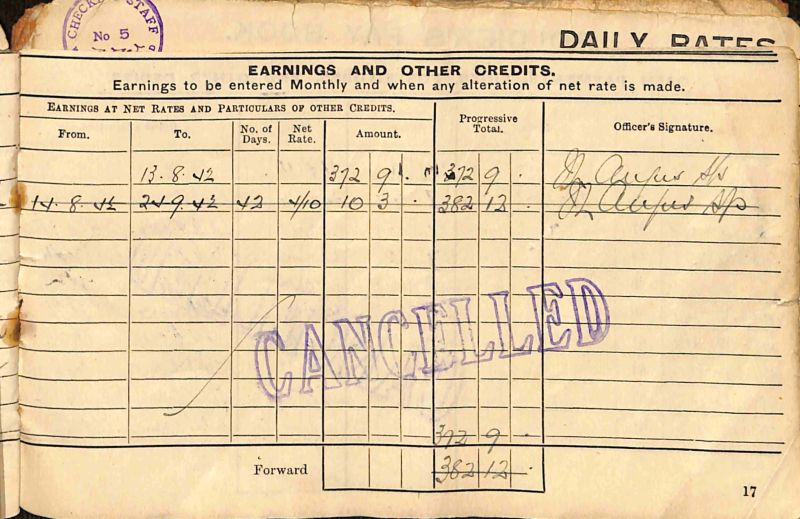 CHECKED STAFF
No 5
DAILY RATES
EARNINGS AND OTHER CREDITS.
Earnings to be entered Monthly and when any alteration of net rate is made.
EARNINGS AT NET RATES AND PARTICULARS OF OTHER CREDITS.
From. To. No. of Days. Net Rate. Amount. Progressive Total. Officer's Signature.
13.8.42 372 9 372 9
14.8.42 24.9.42 42 4/10 10 3 382 12
CANCELLED
372 9
Forward 382 12
17